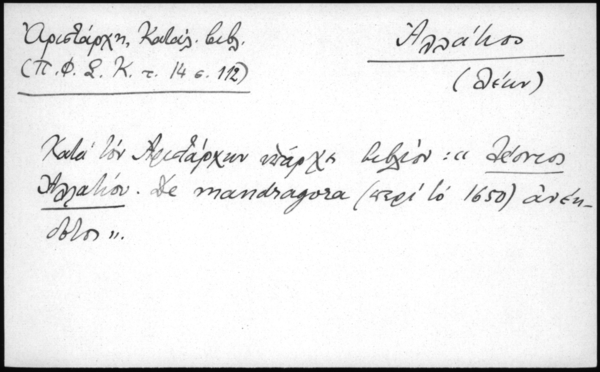 Ἀριστάρχη, Κατάλ. βιβλ.
(Π.Φ.Σ.Κ. τ. 14 σ. 112)
Ἀλλάτιος
(Λέων)
Κατά τόν Ἀριστάρχην ὑπάρχει βιβλίον: «Λέοντος
Ἀλλατίου. De mandragora (περί τό 1650) ἀνέκ-
δοτος».